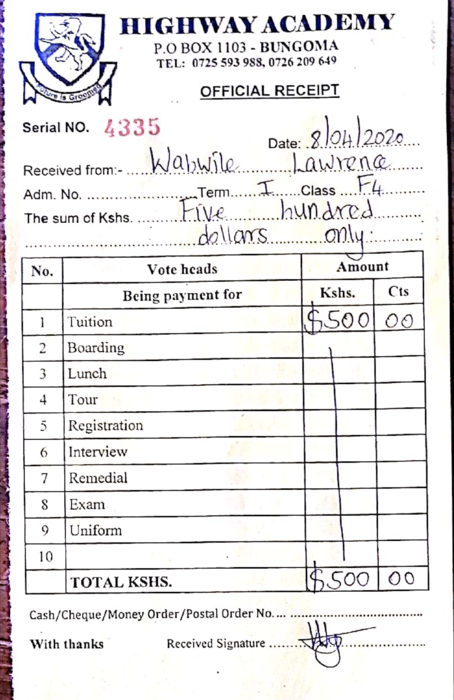 HIGHWAY ACADEMY
P.O BOX 1103 - BUNGOMA
TEL: 0725 593 988, 0726 209 649
Future is Groomed
OFFICIAL RECEIPT
Serial NO. 4335
Date: 8/04/2020
Received from:- Wabwile Lawrence
Adm. No. Term I Class F4
The sum of Kshs. Five hundred
dollars only:
No. Vote heads Amount
Being payment for Kshs. Cts
1 Tuition $500 00
2 Boarding
3 Lunch
4 Tour
5 Registration
6 Interview
7 Remedial
8 Exam
9 Uniform
10
TOTAL KSHS. $500 00
Cash/Cheque/Money Order/Postal Order No....
With thanks Received Signature